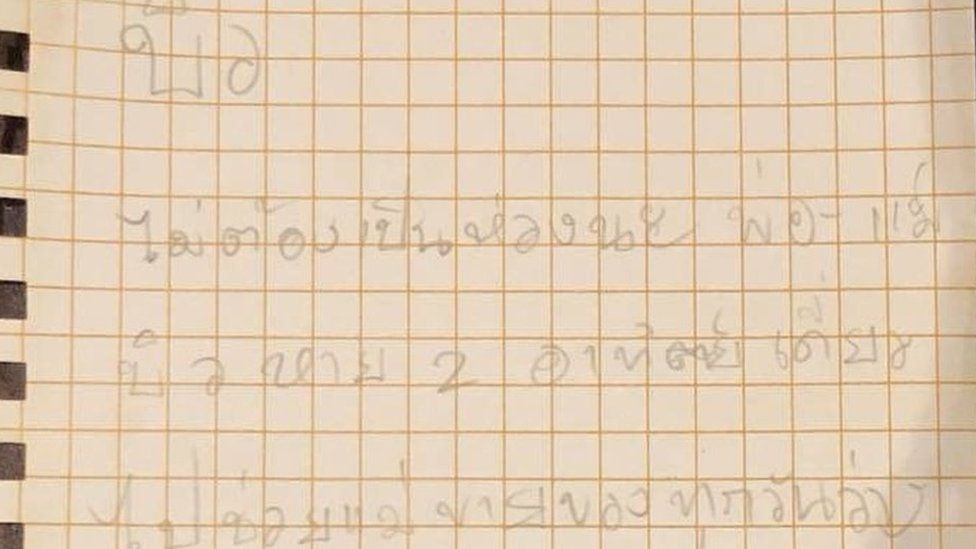 บิว
ไม่ต้องเป็นห่วงนะ พ่อ-แม่
บิวหาย 2 อาทิตย์เดี๋ยว
ไปช่วยแม่ขายของทุกวัน